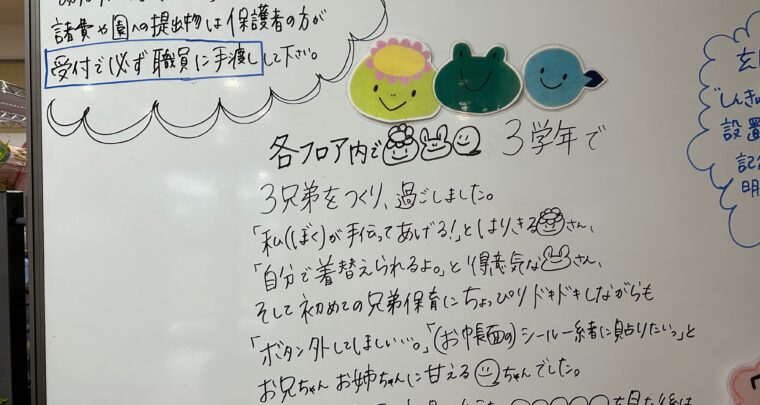 諸費や園への提出物は保護者の方が
受付で必ず職員に手渡しして下さい。
各フロア内で 3学年で
3兄弟をつくり、過ごしました。
「私(ぼく)が手伝ってあげる!」とはりきるさん、
「自分で着替えられるよ。」と得意気なさん、
そして初めての兄弟保育にちょっぴりドキドキしながらも
「ボタン外してほしい…。」「(お帳面の)シール一緒に貼りたいっ」と
お兄ちゃんお姉ちゃんに甘えるちゃんでした。
を見た後は
「しんきゅ
設置
記
明